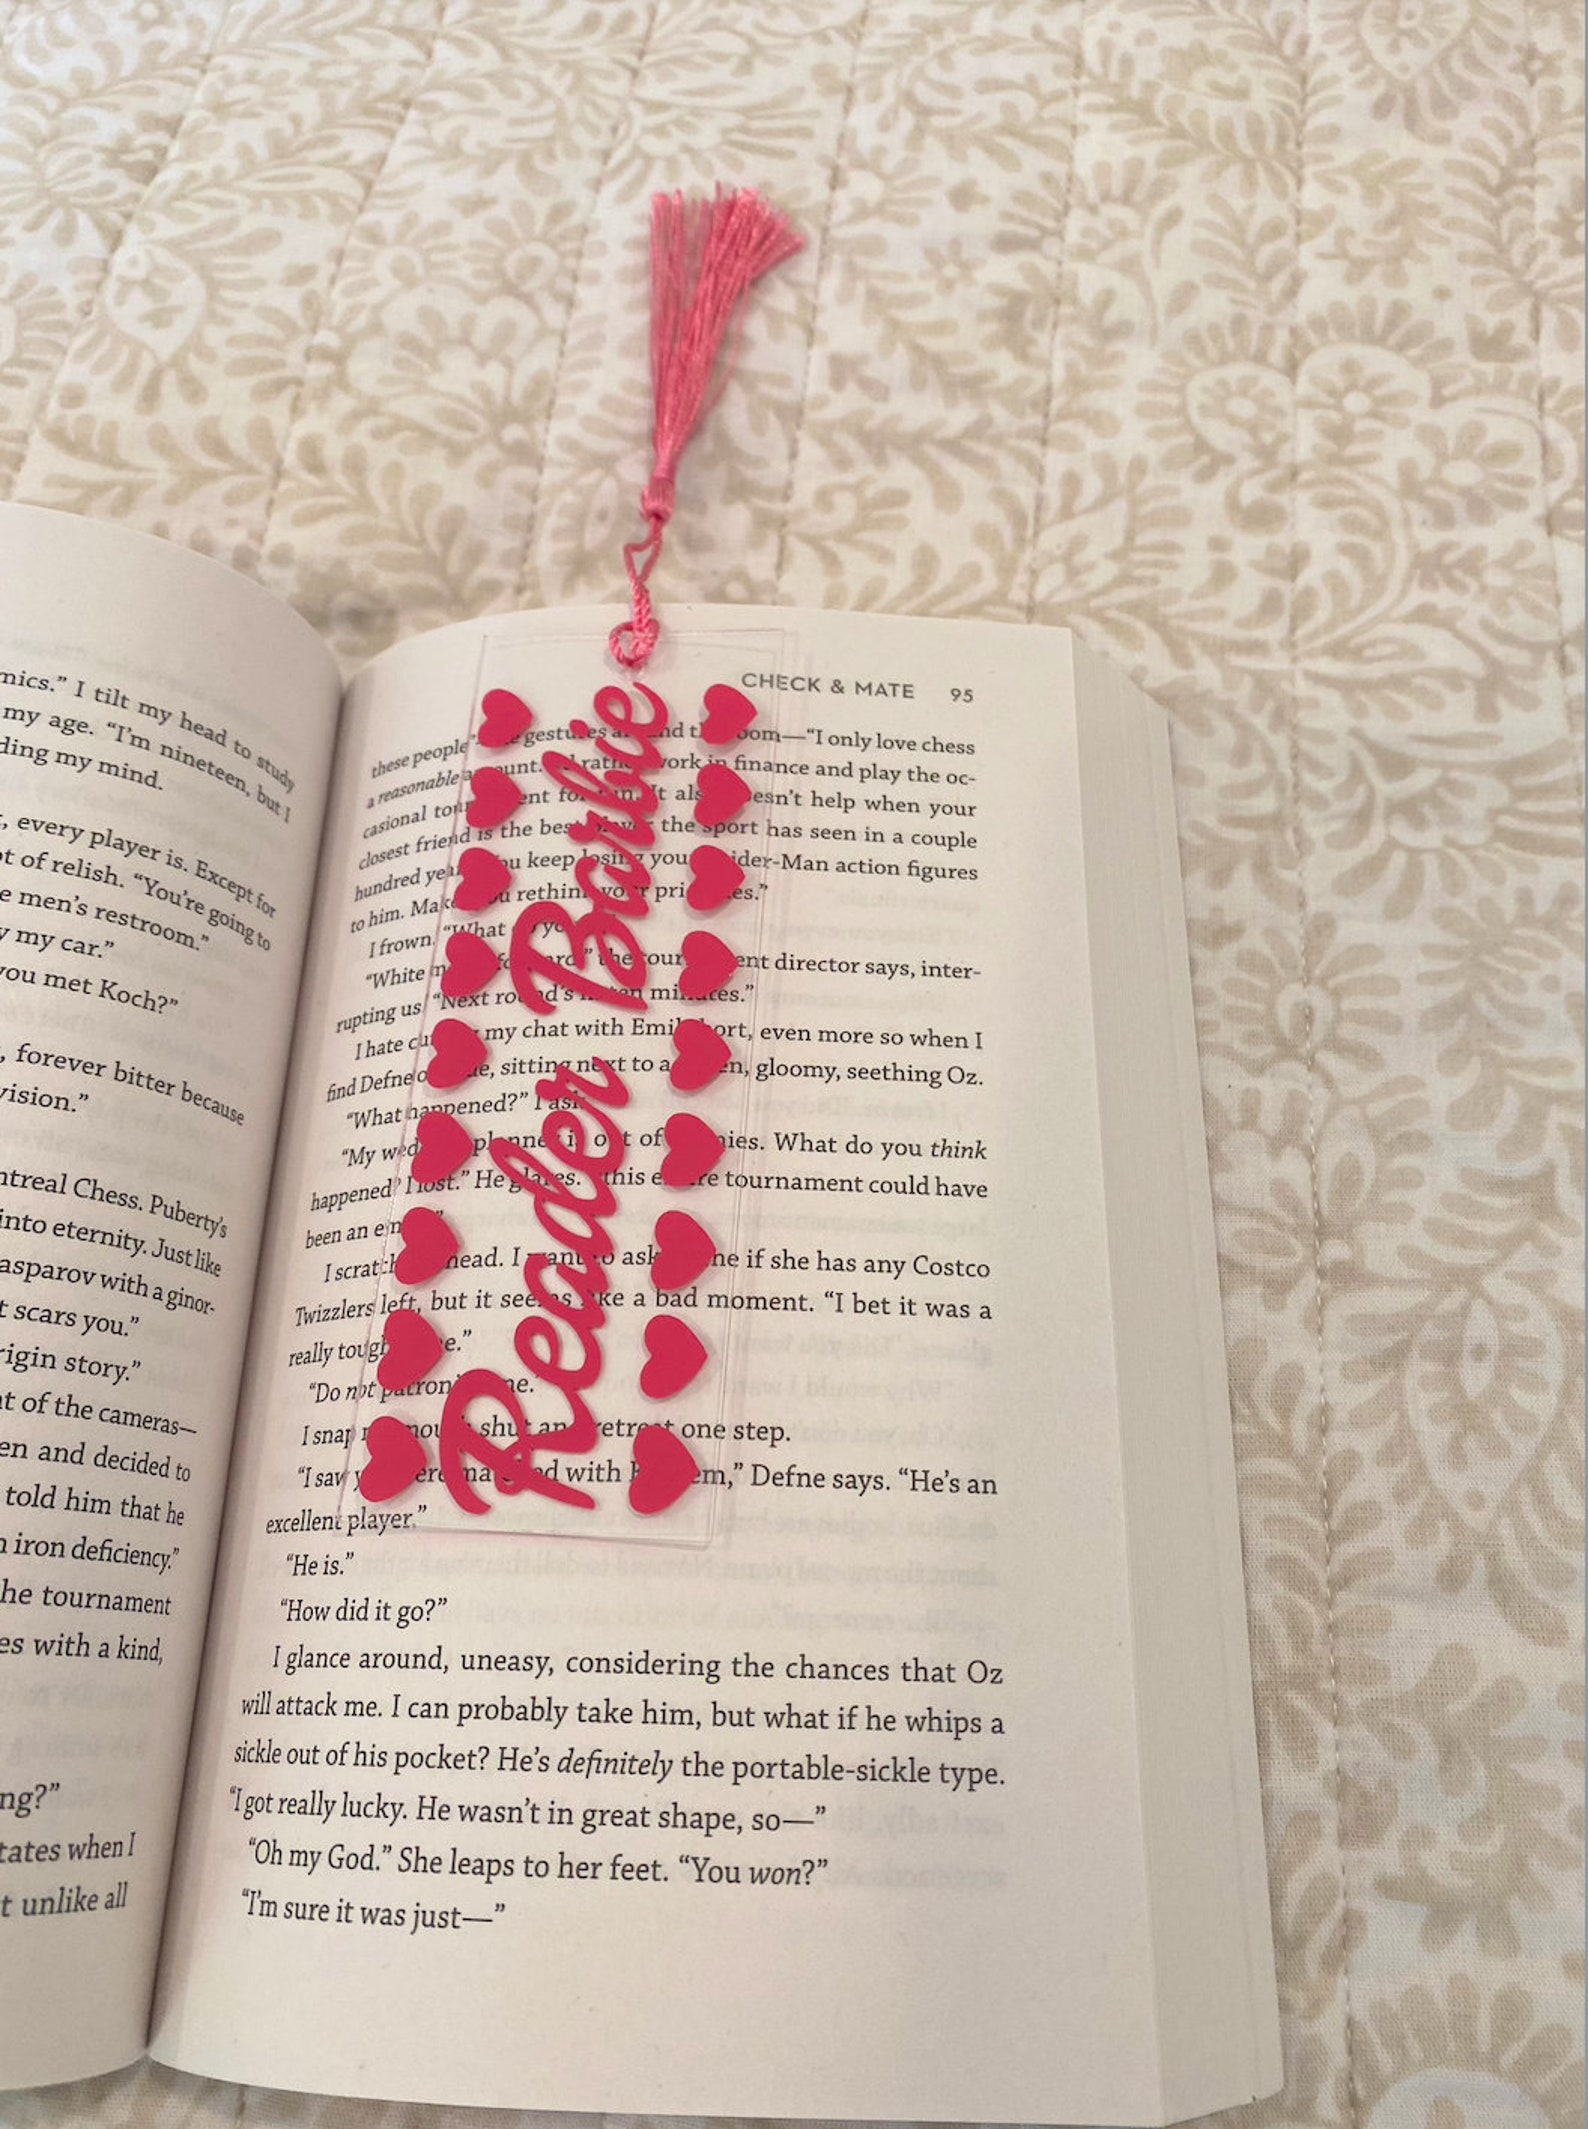 mics.” I tilt my head to study
my age. “I’m nineteen, but I
ding my mind.
, every player is. Except for
ot of relish. “You’re going to
e men’s restroom.”
y my car.”
you met Koch?”
, forever bitter because
vision.”
ntreal Chess. Puberty’s
into eternity. Just like
asparov with a ginor-
t scars you.”
rigin story.”
nt of the cameras—
en and decided to
told him that he
n iron deficiency.”
he tournament
es with a kind,
ng?”
tates when I
t unlike all
CHECK & MATE 95
Reader Barbie
these people gestures and room—“I only love chess
a reasonable work in finance and play the oc-
casional It also doesn’t help when your
closest friend is the best the sport has seen in a couple
hundred you keep losing your action figures
to him. rethink your
I frown. “What
“White director says, inter-
rupting us. “Next round’s ten minutes.”
I hate my chat with Emil short, even more so when I
find Defne sitting next to a gloomy, seething Oz.
“What happened?” I ask.
“My is out of What do you think
happened? I lost.” He glares. this tournament could have
been an
I scratch head. I want to ask if she has any Costco
Twizzlers left, but it seems like a bad moment. “I bet it was a
really tough
“Do not me.”
I snap shut and retreat one step.
“I saw with Defne says. “He’s an
excellent player.”
“He is.”
“How did it go?”
I glance around, uneasy, considering the chances that Oz
will attack me. I can probably take him, but what if he whips a
sickle out of his pocket? He’s definitely the portable-sickle type.
“I got really lucky. He wasn’t in great shape, so—”
“Oh my God.” She leaps to her feet. “You won?”
“I’m sure it was just—”